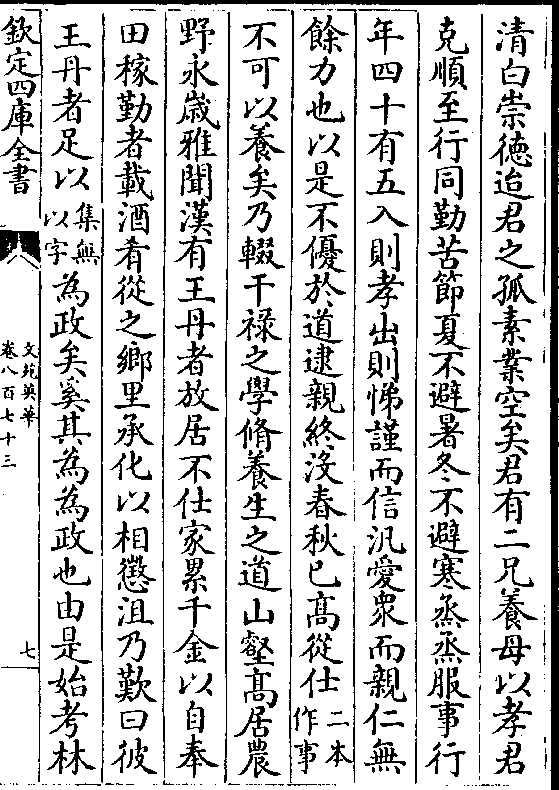 清白崇徳迨君之孤素業空矣君有二兄養母以孝君
克順至行同勤苦節夏不避暑冬不避寒烝烝服事行
年四十有五入則孝出則悌謹而信汎愛衆而親仁無
餘力也以是不優於道逮親終没春秋已髙從仕二本作事
不可以養矣乃輟干禄之學脩養生之道山壑髙居農
野永歳雅聞漢有王丹者放居不仕家累千金以自奉
田稼勤者載酒肴從之鄉里承化以相懲沮乃歎曰彼
王丹者足以集無以字為政矣奚其為為政也由是始考林
欽定四庫全書
文苑英華
卷八百七十三
七